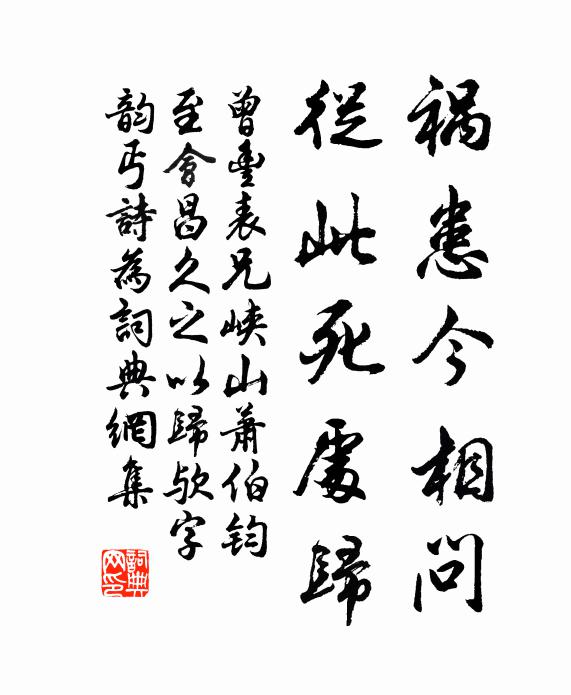 禍患今相問
從此死處歸
曾豐表兄峽山蕭伯鈞
至會昌久之以歸欤字
韵丐詩為詞典網集
詞典网印